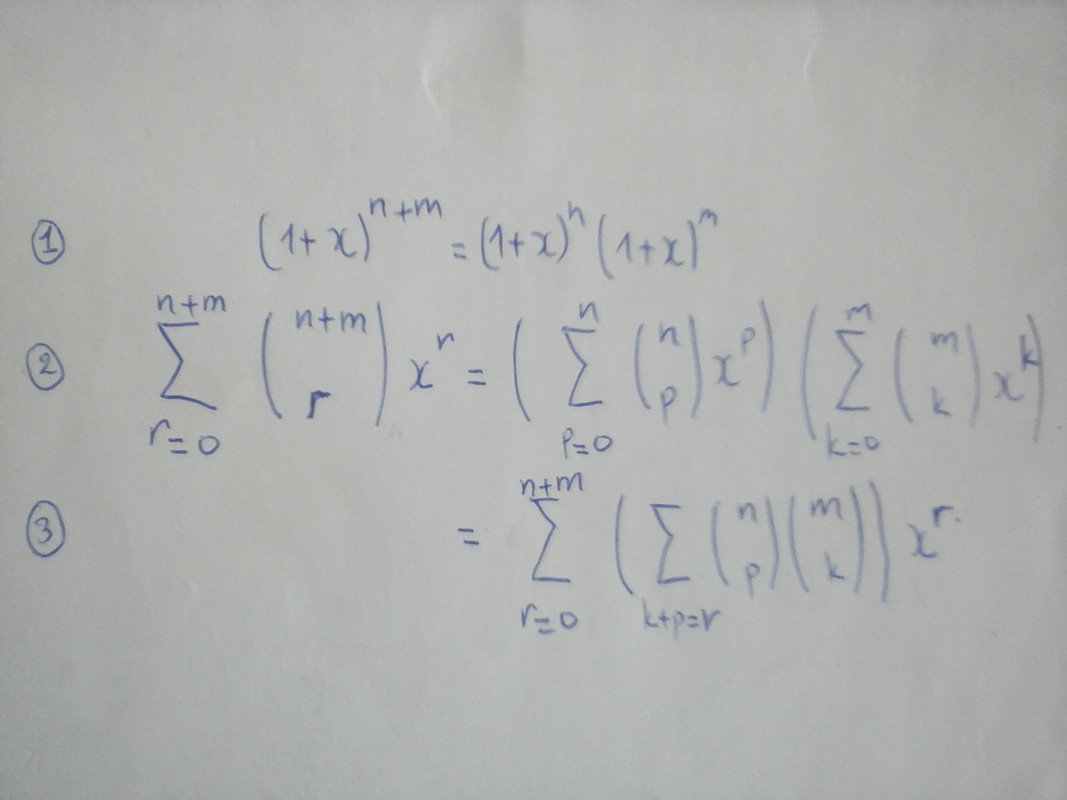 ① (1+x)^{n+m} = (1+x)^n (1+x)^m
② \sum_{r=0}^{n+m} \binom{n+m}{r} x^r = \left( \sum_{p=0}^{n} \binom{n}{p} x^p \right) \left( \sum_{k=0}^{m} \binom{m}{k} x^k \right)
③ = \sum_{r=0}^{n+m} \left( \sum_{k+p=r} \binom{n}{p} \binom{m}{k} \right) x^r.